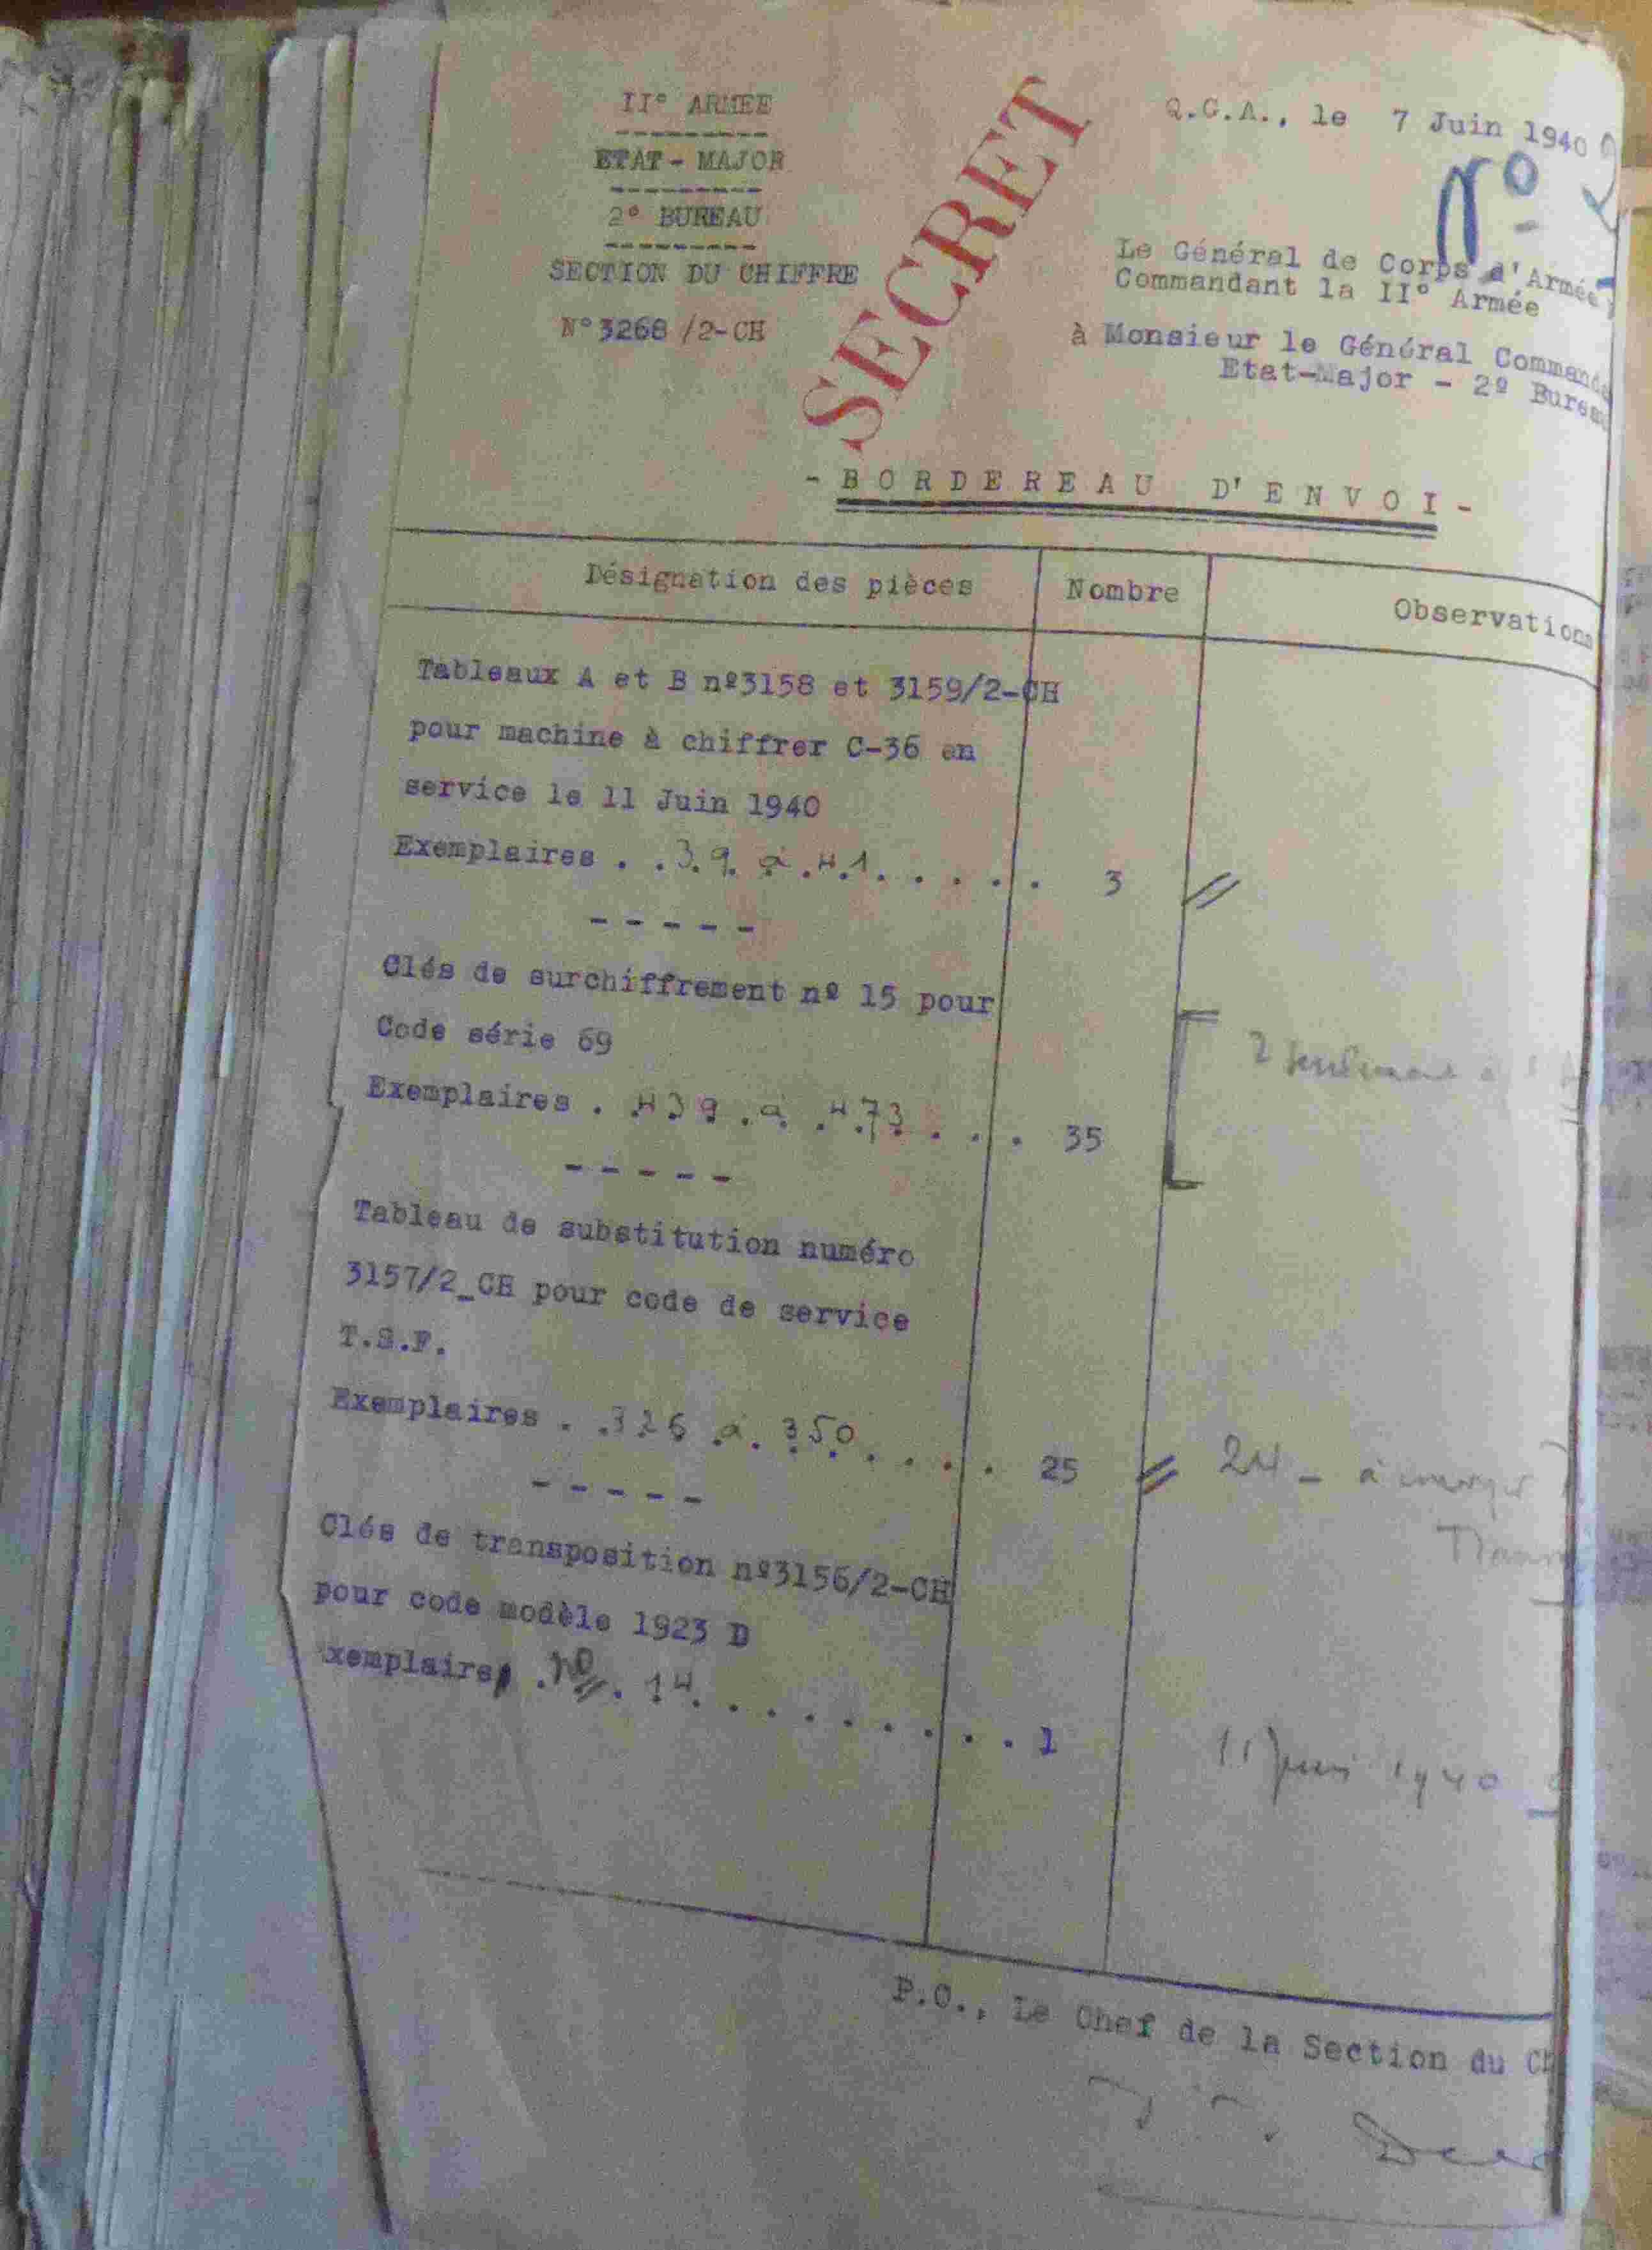 II° ARMEE
ETAT - MAJOR
2° BUREAU
SECTION DU CHIFFRE
N° 3268 /2-CH
SECRET
Q.G.A., le 7 Juin 1940
N°
Le Général de Corps d'Armée,
Commandant la II° Armée
à Monsieur le Général Command
Etat-Major - 2º Bureau
- BORDEREAU D'ENVOI -
Désignation des pièces Nombre Observations
Tableaux A et B nº3158 et 3159/2-CH
pour machine à chiffrer C-36 en
service le 11 Juin 1940
Exemplaires . . 39 à 41 . . . . . 3
- - - - -
Clés de surchiffrement nº 15 pour
Code série 69
Exemplaires . 439 à 473 . . . 35
2 seulement
- - - - -
Tableau de substitution numéro
3157/2_CH pour code de service
T.S.F.
Exemplaires . . 326 à 350 . . . . 25
24 - à
- - - - -
Clés de transposition nº3156/2-CH
pour code modèle 1923 D
xemplaire . nº . 14 . . . . . . . . . 1
11 Juin 1940
P.O., Le Chef de la Section du Ch